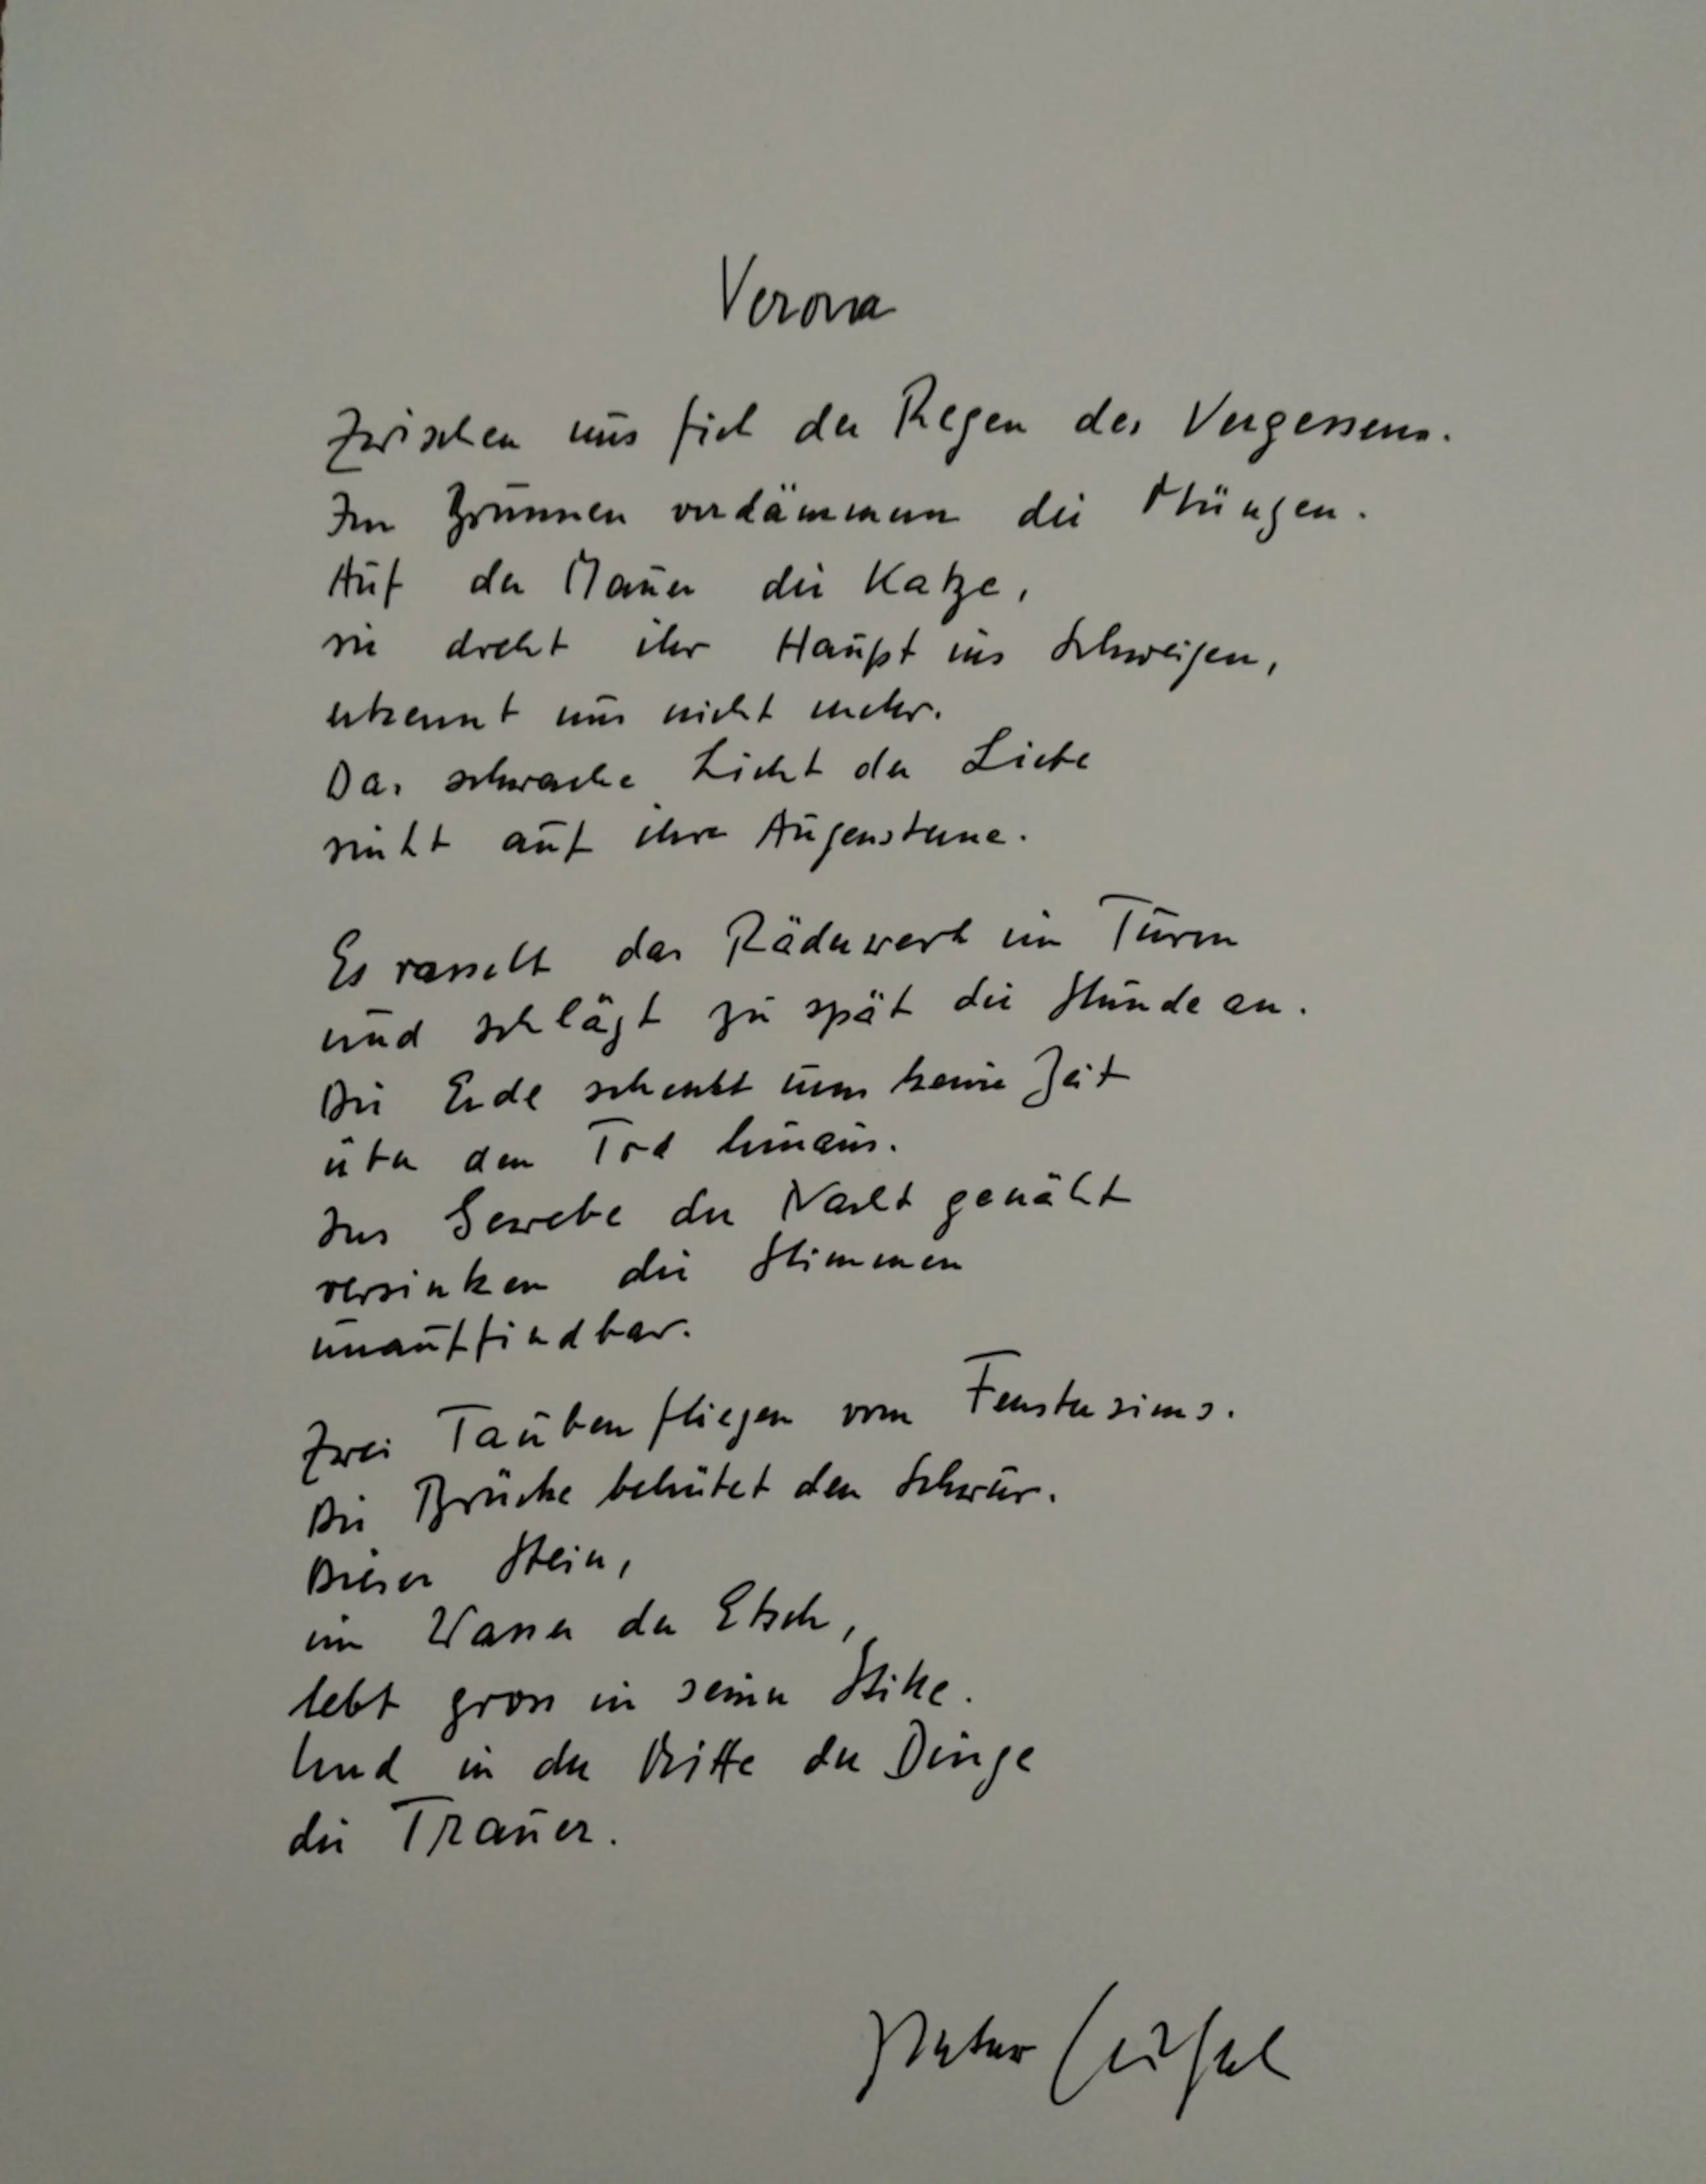 Verona
Zwischen uns fiel der Regen des Vergessens.
Im Brunnen verdämmern die Münzen.
Auf der Mauer die Katze,
sie dreht ihr Haupt ins Schweigen,
erkennt uns nicht mehr.
Das schwache Licht der Liebe
sinkt auf ihre Augensterne.
Es rasselt das Räderwerk im Turm
und schlägt zu spät die Stunde an.
Die Erde schenkt uns keine Zeit
über den Tod hinaus.
Ins Gewebe der Nacht genäht
versinken die Stimmen
unauffindbar.
Zwei Tauben fliegen vom Fenstersims.
Die Brücke behütet den Schwur.
Dieser Stein,
im Wasser der Etsch,
lebt gross in seiner Stille.
Und in der Mitte der Dinge
die Trauer.
Peter Huchel